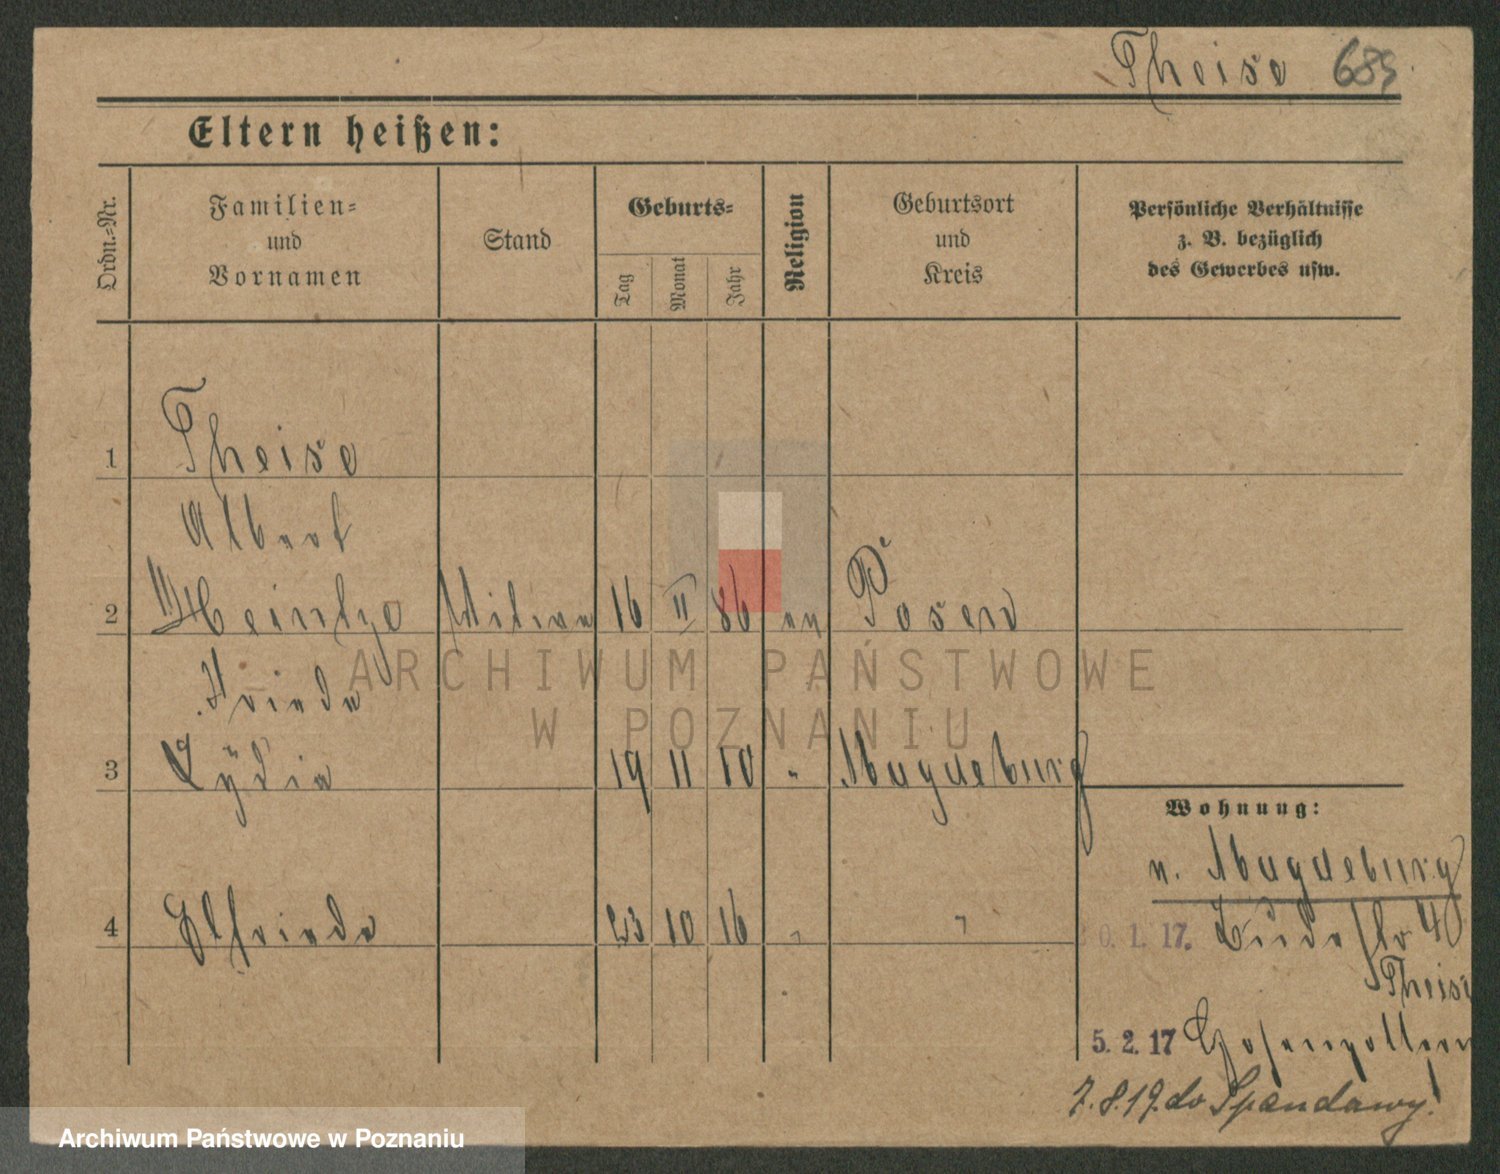 Theise 685
Eltern heißen:
Ordn.-Nr.
Familien=
und
Vornamen
Stand
Geburts=
Tag
Monat
Jahr
Religion
Geburtsort
und
Kreis
Persönliche Verhältnisse
z. B. bezüglich
des Gewerbes usw.
1 Theise
Albert
2 Heintze Witwe 16 II 86 ev Posen
Frieda
3 Lydia 19 11 10 " Magdeburg
4 Elfriede 23 10 16 " "
Wohnung:
n. Magdeburg
0. 1. 17.
Theise
5. 2. 17
7.8.19. do Spandawy.
ARCHIWUM PAŃSTWOWE
W POZNANIU
Archiwum Państwowe w Poznaniu